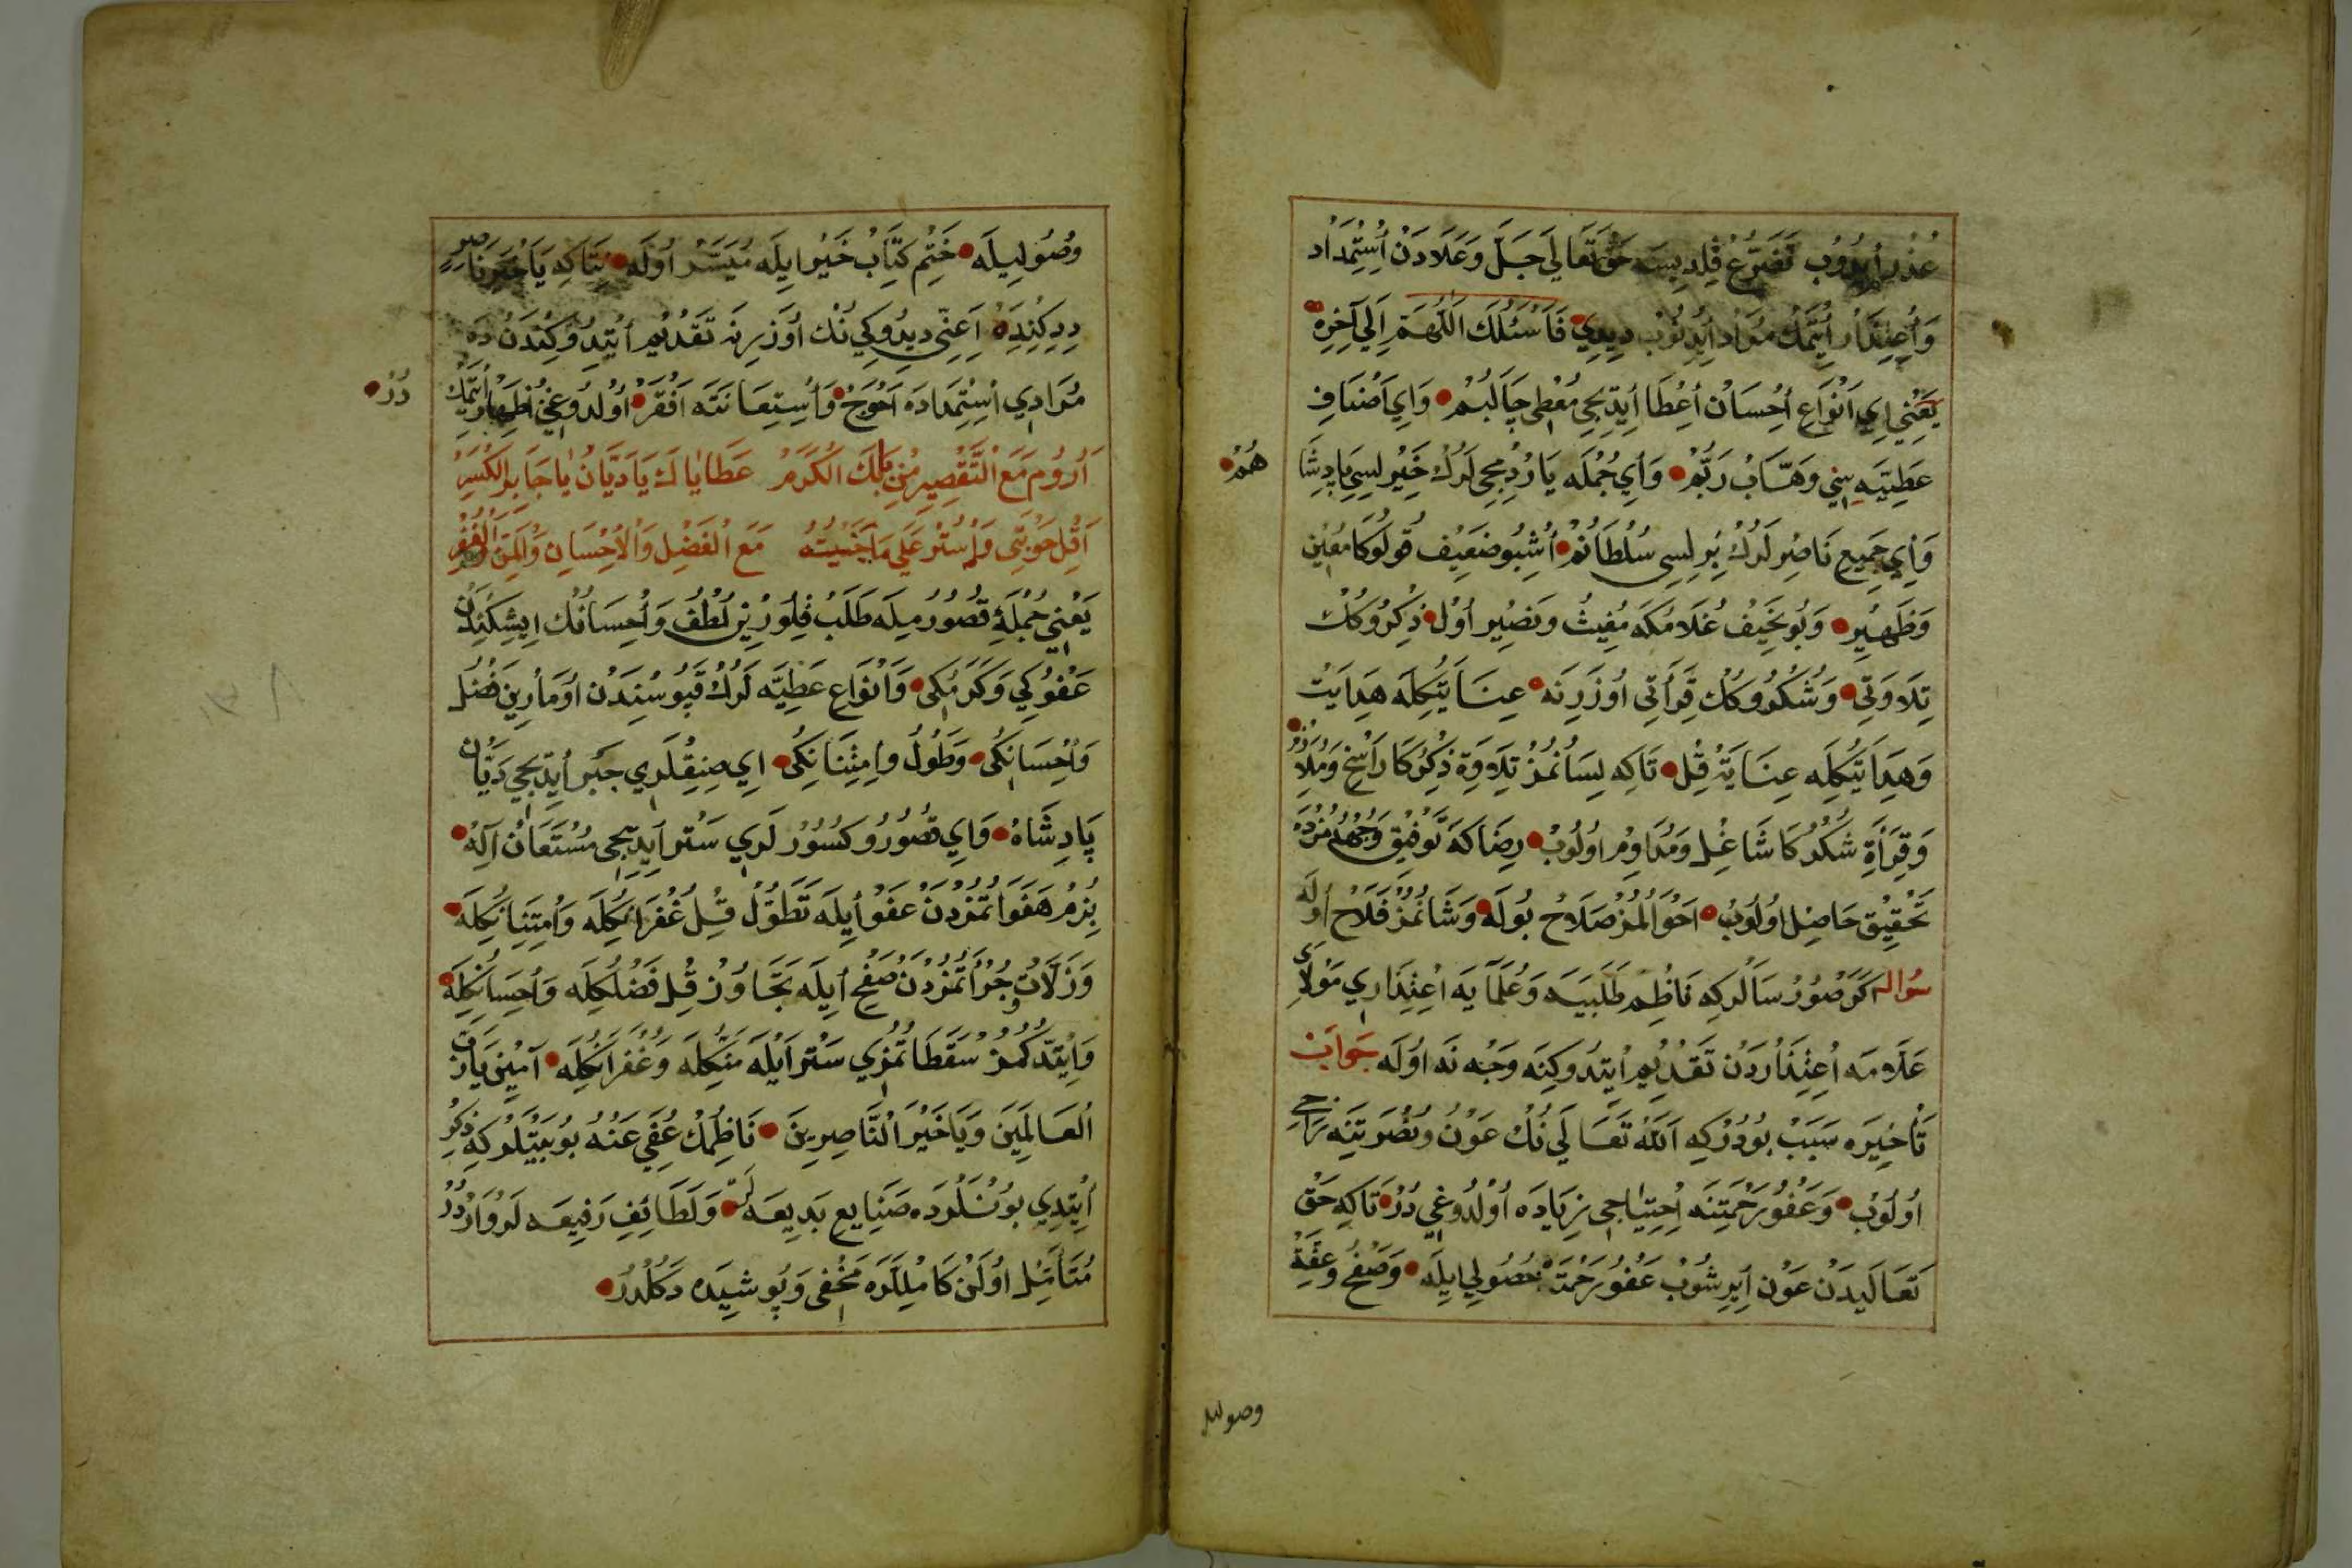 عُذْر أيدُوب تَضَرُّع قِلدِيسه حَق تَعَالَى جَلَّ وَعَلَادَنْ اُسْتِمْدَاد
وَاُعِتِذَار اُيتْمَك مُرَاد اُيدِنُوبْ دِيدِي فَاَسْئَلُكَ اللّٰهُمَّ اِلَى آخِرِهْ
يَعْنِي اِي اَنْوَاعِ اُحْسَانْ اُعْطَا اُيدِيجِي مُعْطِي چَالَبُمْ وَاِي اَصْنَافِ
عَطِيَّه سِنِي وَهَّابْ رَبُّمْ وَاِي جُمْلَه يَارْدِمْجِيلَرُكْ خَيْرلِيسِي پَادِشَا
هُمْ
وَاِي جَمِيعِ نَاصِرلَرُكْ بِرلِسِي سُلْطَانُمْ اُشْبُو ضَعِيف قُولُوكَا مُعِين
وَظَهِيرِ وَبُو نَحِيفْ غُلَامُكَه مُغِيثْ وَنَصِير اُولْ ذِكِرُوكُكْ
تِلَاوَتِي وَشُكُرُوكُكْ قِرَأَتِي اُوزَرِنَه عِنَايَتُكِلَه هِدَايَتْ
وَهِدَايَتُكِلَه عِنَايَتْ قِلْ تَاكِه لِسَانُمُزْ تِلَاوَةِ ذِكْرُكَا رَاسِخ وَمُلَازِمْ
وَقِرَأَةِ شُكْرُكَا شَاغِل وَمُدَاوِمْ اُولُوبْ رِضَاكَه تَوْفِيق وَجْهُمُزْدَه
تَحْقِيق حَاصِل اُولُوبْ اَحْوَالُمُزْ صَلَاحْ بُولَه وَشَانُمُزْ فَلَاحْ اُولَه
سُوال اكَر صُورُرسَالَركِه نَاظِم طَلَبَيه وَعُلَمَايَه اُعْتِذَارِي مَولَاىِ
عَلَّامَه اُعْتِذَارْدَنْ تَقْدِيمِ اُيتِدُوكِنَه وَجْه نَه اُولَه جَوَاب
تَأْخِيرَه سَبَبْ بُودُرْكِه اَللّٰه تَعَالَى نُكْ عَوْن وَنُصْرَتِنَه رَاجِي
اُولُوبْ وَعَفُو رَحْمَتِنَه اُحْتِيَاجِي زِيَادَه اُولْدُوغِي دُرْ تَاكِه حَقْ
تَعَالَيدَنْ عَوْن اِيرِشُوبْ عَفُو رَحْمَتْ حُصُولِي اِيلَه وَصَفْح وَعِفَّةْ
وصوليله
وُصُولِيلَه خَتْمِ كِتَابْ خَيْر اِيلَه مُيَسَّر اُولَه نِتَاكِه يَاخَيْرَ نَاصِرٍ
دِدِكِنِدَه اِعِنِّي دِيدُوكِي نُكْ اُوزَرِنَه تَقْدِيمِ اُيتِدُوكِنْدَنْ دَه
مُرَادِي اُسْتِمْدَادَه اَحْوَجْ وَاُسْتِعَانَتَه اَفْقَرْ اُولدُوغِنْ اِظْهَار اُيتْمَكْ
دُرْ
اَرُومُ مَعَ التَّقْصِيرِ مِنْ بَابِكَ الْكَرَمْ عَطَايَاكَ يَادَيَّانُ يَاجَابِرَ الْكَسْرِ
اَقِلْ حَوْبَتِي وَاسْتُرْ عَلَى مَاجَنَيْتُهُ مَعَ الْفَضْلِ وَالْاِحْسَانِ وَالْمَنِّ وَالْغَفْرِ
يَعْنِي جُمْلَهٔ قُصُورُمِيلَه طَلَبْ قِلُورِينْ لُطْف وَاُحْسَانُكْ اِيشِكِنْدَنْ
عَفُوكِي وَكَرَمُكِي وَاَنْوَاعِ عَطِيَّه لَرُكْ قَپُوسُنْدَنْ اُومَارِين فَضْل
وَاُحْسَانِكِي وَطَوْلُ وَاِمْتِنَانِكِي اِي صِنِقْلَرِي جَبْر اُيدِيجِي دَيَّان
پَادِشَاهْ وَاِي قُصُورُ وَكُسُورْلَرِي سَتْر اَيدِيجِي مُسْتَعَانْ اِلٰهْ
بِزُمْ هَفَوَاتُمُزْدَنْ عَفْو اُيلَه تَطَوُّلْ قِل غُفْرَانُكِلَه وَاُمْتِنَانُكِلَه
وَزَلَّاتْ وَجُرْأَتُمُزْدَنْ صَفْح اُيلَه تَجَاوُزْ قِل فَضْلُكِلَه وَاُحْسَانُكِلَه
وَاُيتِدُكُمُزْ سَقَطَاتُمُزِي سَتْر اَيلَه مَنِّكِلَه وَغُفْرَانُكِلَه آمِين يَارَبَّ
الْعَالَمِينَ وَيَاخَيْرَ النَّاصِرِينَ نَاظِمُكْ عُفِيَ عَنْهُ بُو بَيْتْلَركِه ذِكْر
اُيتِدِي بُونْلَرْدَه صَنَايِعِ بَدِيعَه لَرْ وَلَطَائِفِ رَفِيعَه لَر وَارْدُرْ
مُتَأَمِّل اُولَنْ كَامِلْلَرَه مَخْفِي وَپُوشِيدَه دَكُلْدُرْ